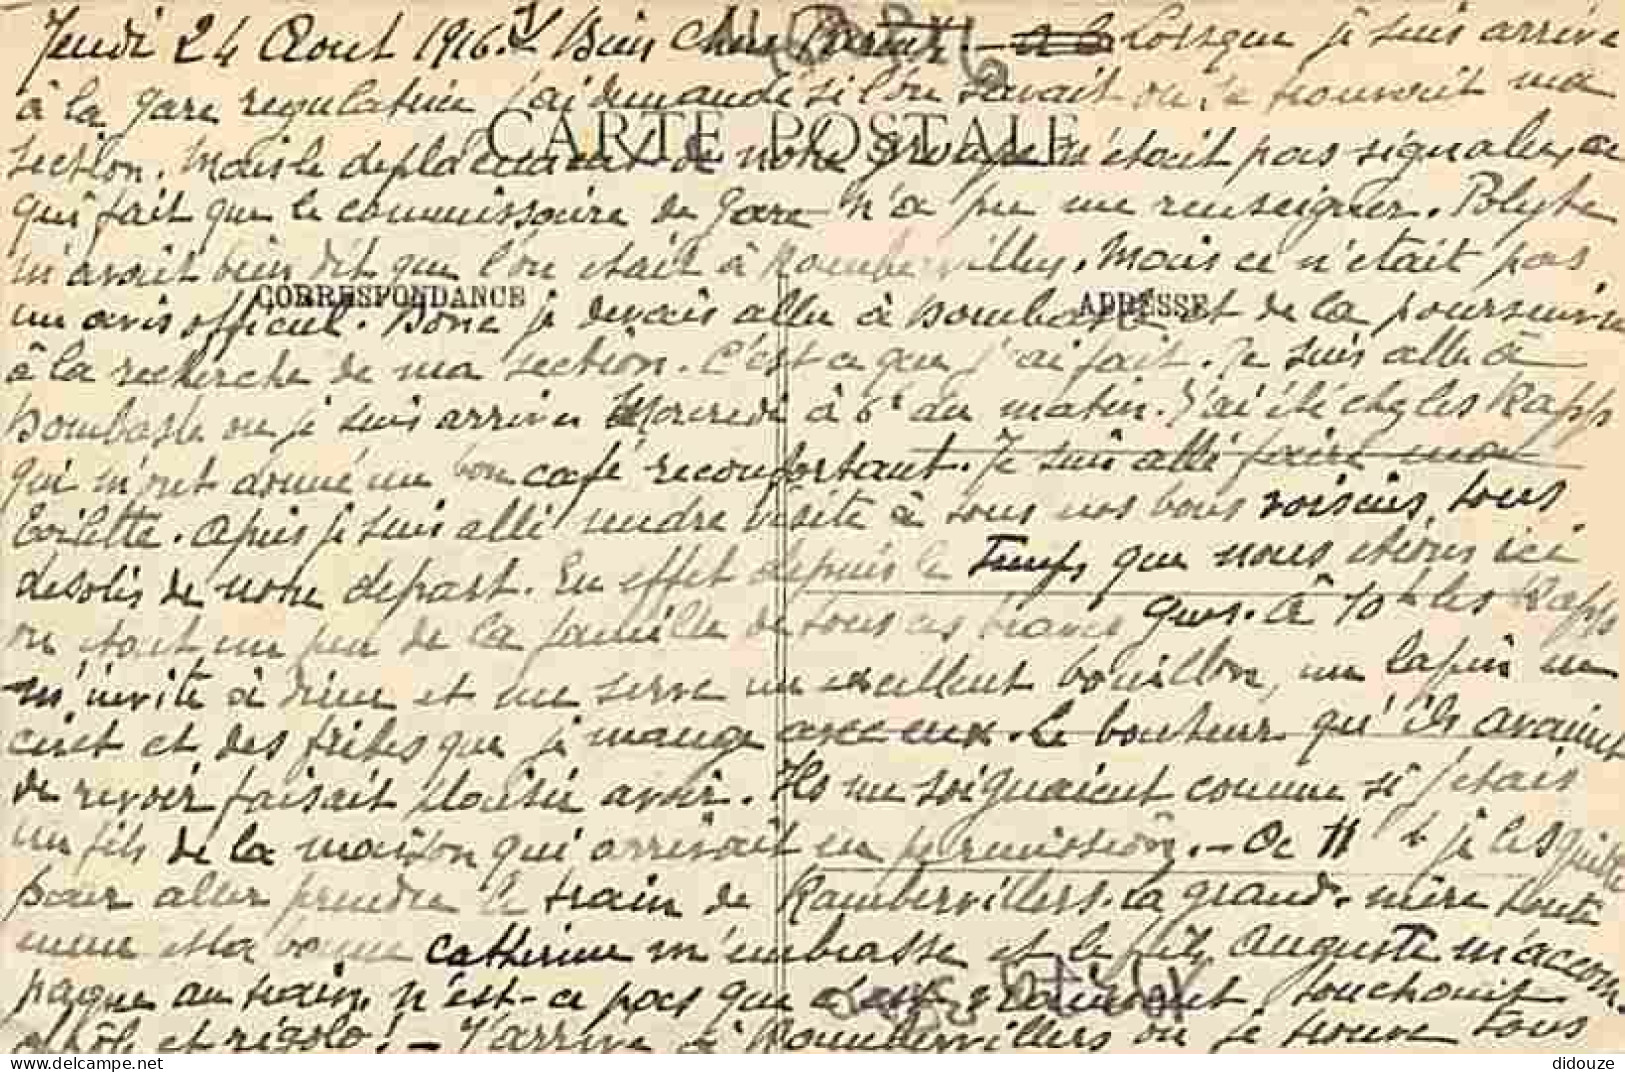 Jeudi 24 Aout 1916. Bien Chers Parents - Lorsque je suis arrivé
à la gare regulatrice j'ai demandé si l'on savait ou se trouvait ma
CARTE POSTALE
section. Mais le deplacement de notre groupe n'était pas signalé, ce
qui fait que le commissaire de gare n'a pu me renseigner. Polyte
m'avait bien dit que l'on etait à Rambervillers. Mais ce n'etait pas
CORRESPONDANCE ADRESSE
un avis officiel. Donc je devais aller à Dombasle et de la poursuivre
à la recherche de ma section. C'est ce que j'ai fait. Je suis allé à
Dombasle ou je suis arrivé Mercredi à 6h du matin. J'ai été chez les Rapps
qui m'ont donné un bon café réconfortant. Je suis allé faire mon
toilette. Apres je suis allé rendre visite à tous nos bons voisins, tous
desolés de notre depart. En effet depuis le temps que nous etions ici
on etait un peu de la famille de tous ces braves gens. A 10h les Rapps
m'invite à diner et me serve un excellent bouillon, un lapin en
civet et des frites que je mange avec eux. Le bonheur qu'ils avaient
de me revoir faisait plaisir avoir. Ils me soignaient comme si j'etais
un fils de la maison qui arrivait en permission. - A 11 h je les quitte
pour aller prendre le train de Rambervillers. La grand-mère toute
emue et la bonne Catherine m'embrasse et le fils Auguste m'accom-
pagne au train. N'est-ce pas que c'est vraiment touchant
et rigolo! - J'arrive à Rambervillers ou je trouve tous
didouze